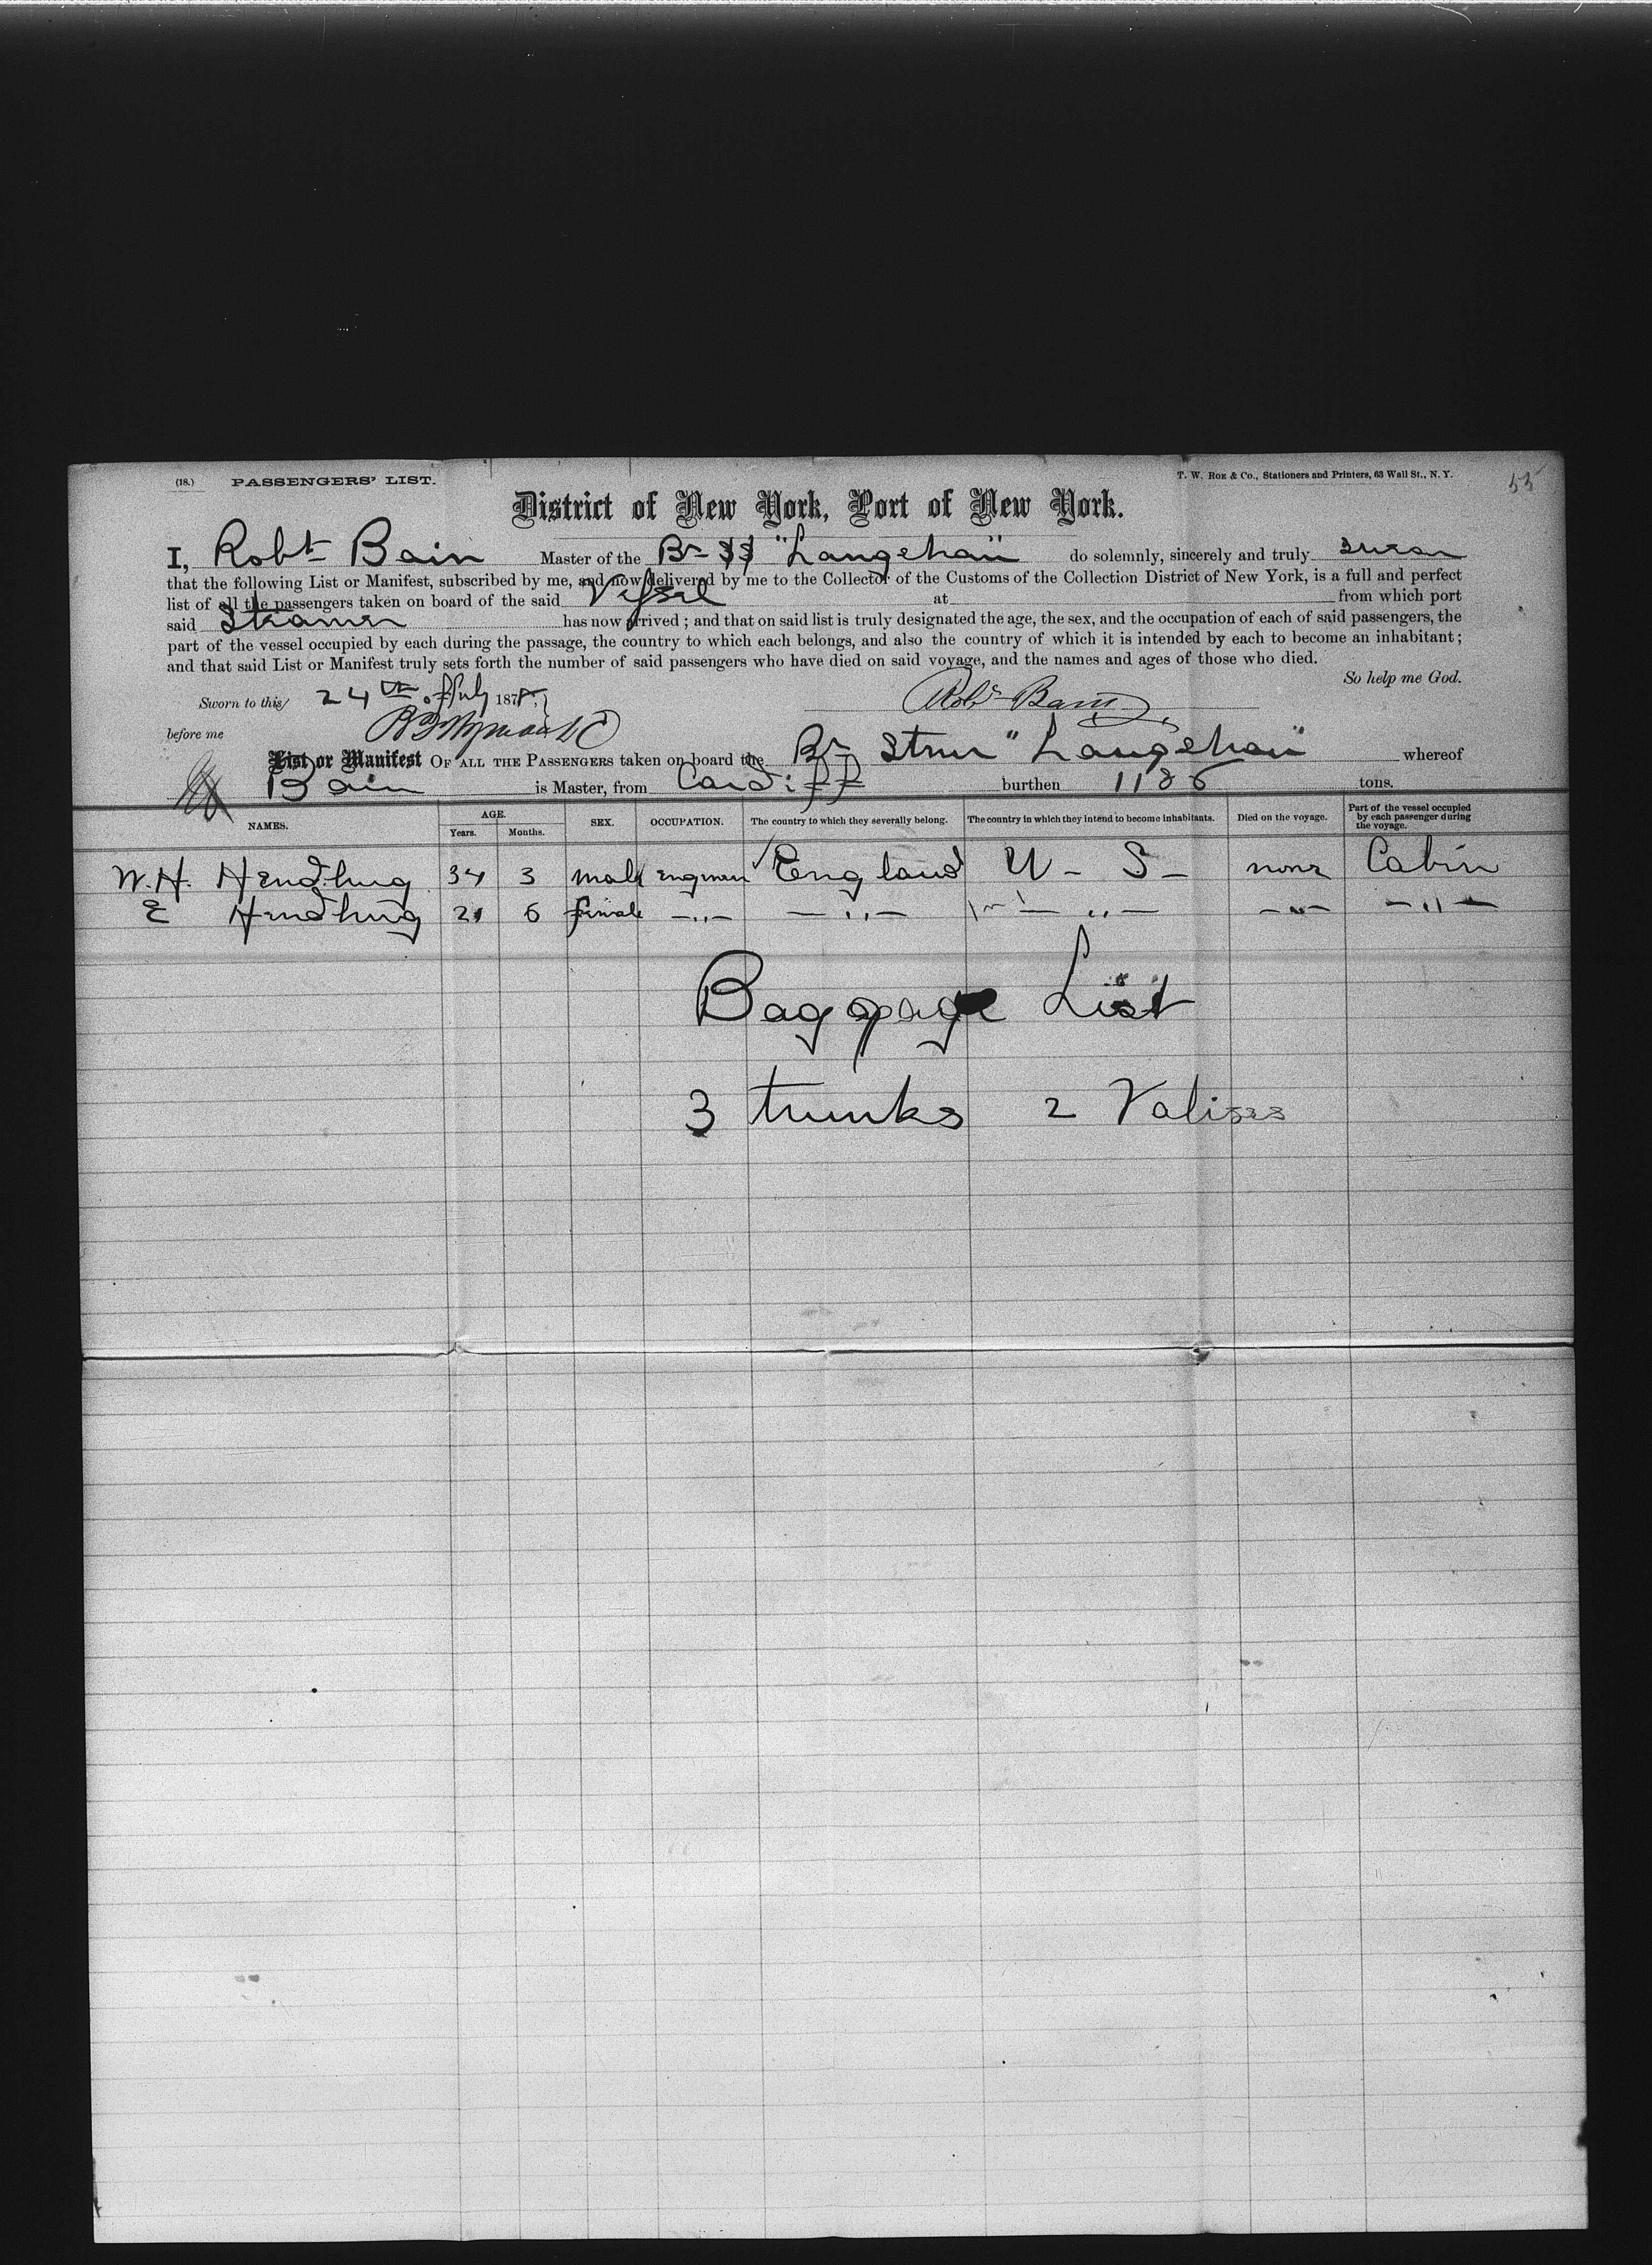 (18.) PASSENGERS' LIST. T. W. Roe & Co., Stationers and Printers, 63 Wall St., N. Y. 55
District of New York, Port of New York.
I, Robt Bain Master of the Br SS "Langshaw" do solemnly, sincerely and truly swear
that the following List or Manifest, subscribed by me, and now delivered by me to the Collector of the Customs of the Collection District of New York, is a full and perfect
list of all the passengers taken on board of the said Vessel at from which port
said Steamer has now arrived ; and that on said list is truly designated the age, the sex, and the occupation of each of said passengers, the
part of the vessel occupied by each during the passage, the country to which each belongs, and also the country of which it is intended by each to become an inhabitant ;
and that said List or Manifest truly sets forth the number of said passengers who have died on said voyage, and the names and ages of those who died.
So help me God.
Sworn to this 24th of July 187
Robt Bain
before me
List or Manifest OF ALL THE PASSENGERS taken on board the Br Stmr "Langshaw" whereof
Bain is Master, from Cardiff burthen 1186 tons.
NAMES. AGE. Years. Months. SEX. OCCUPATION. The country to which they severally belong. The country in which they intend to become inhabitants. Died on the voyage. Part of the vessel occupied by each passenger during the voyage.
W. H. 34 3 male England U - S - none Cabin
E 21 6 female — " — — " — — " — — " — — " —
Baggage List
3 trunks 2 Valises